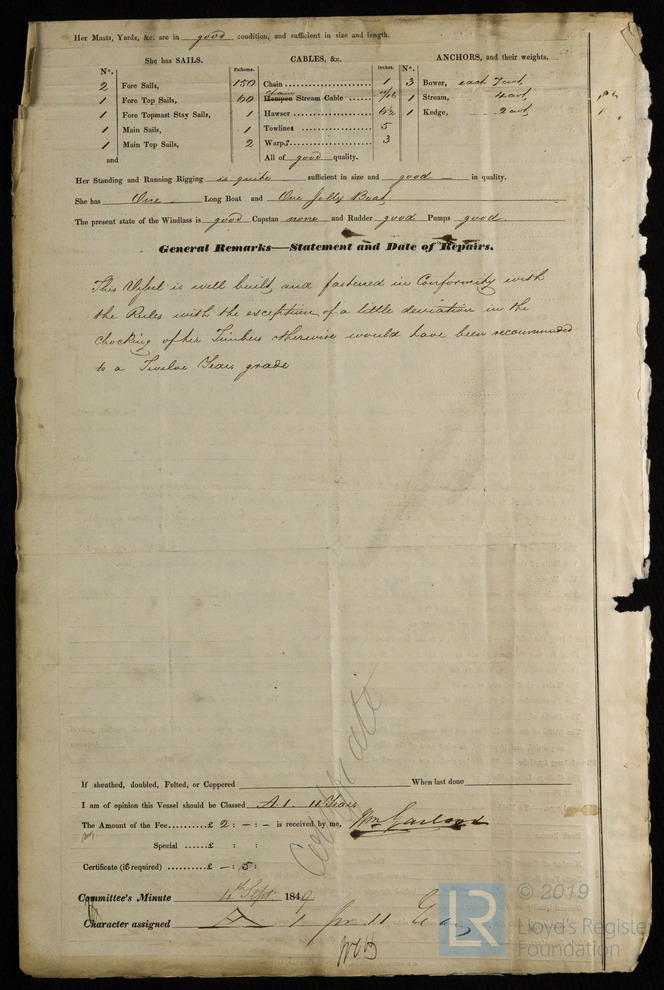 Her Masts, Yards, &c. are in good condition, and sufficient in size and length.
She has SAILS.
CABLES, &c.
ANCHORS, and their weights.
Nº.
Fathoms.
Inches.
Nº.
2 Fore Sails, 150 Chain 1 3 Bower, each 7 cwt
1 Fore Top Sails, 60 Hempen Chain Stream Cable 1 Stream, 4 cwt
1 Fore Topmast Stay Sails, 1 Hawser 1 Kedge, 2 cwt
1 Main Sails, 1 Towlines 5
1 Main Top Sails, 2 Warps 3
and All of good quality.
Her Standing and Running Rigging is quite sufficient in size and good in quality.
She has One Long Boat and One Jolly Boat
The present state of the Windlass is good Capstan none and Rudder good Pumps good.
General Remarks—Statement and Date of Repairs.
This Vessel is well built, and fastened in Conformity with
the Rules with the exception of a little deviation in the
chocking of her Timbers otherwise would have been recommended
to a Twelve Years grade
If sheathed, doubled, Felted, or Coppered When last done
I am of opinion this Vessel should be Classed A1. 11 Years
The Amount of the Fee..........£ 2 : - : - is received by me, Wm Garland
Special ......£ : :
Certificate (if required) ......£ - : 5 :
Certificate
Committee's Minute 11th Sept. 1849
Character assigned A 1 for 11 Years
LR
© 2019
Lloyd's Register
Foundation